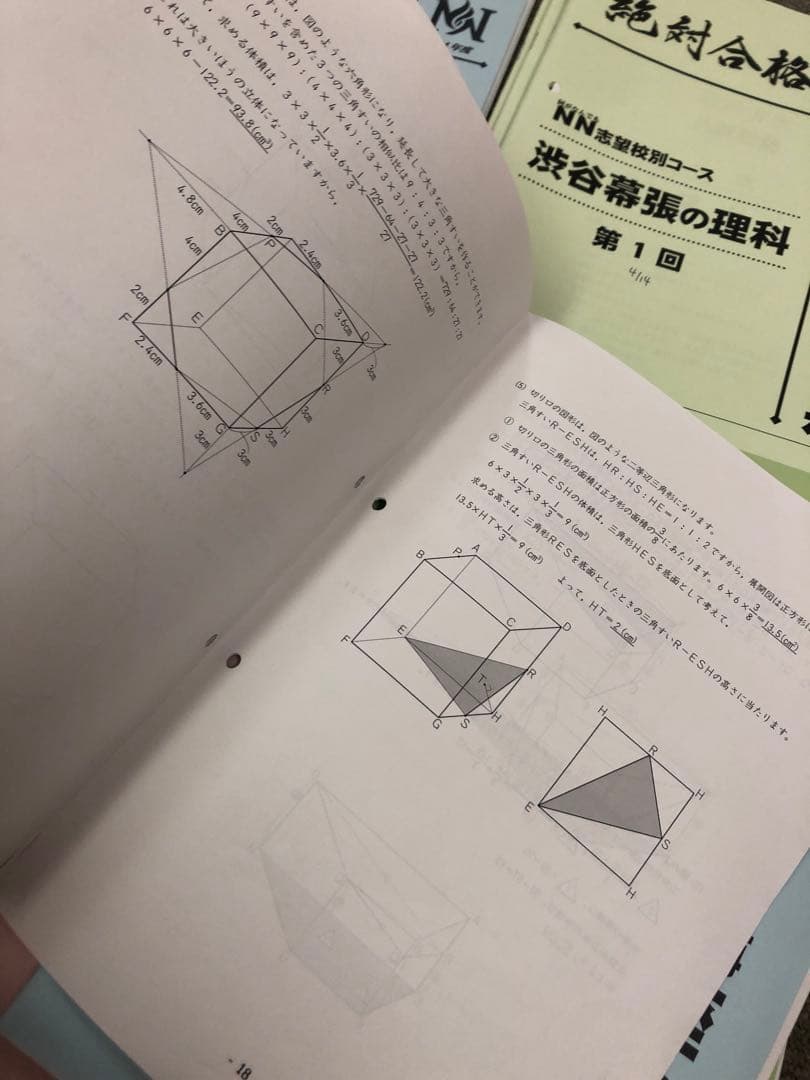 は，図のような六角形になり，延長して大きな三角すいを作ることができます。
すいを含めた3つの三角すいの相似比は9：4：3：3ですから，
(9×9×9)：(4×4×4)：(3×3×3)：(3×3×3)＝729：64：27：27
て，求める体積は，3×3×1/2×3.6×1/3×(729−64−27−27)/27＝122.2(cm³)
れは大きいほうの立体になっていますから，
6×6×6−122.2＝93.8(cm³)
4.8cm
4cm
2cm
2.4cm
B
P
4cm
2cm
F
E
C
3.6cm
D
3cm
3cm
R
2.4cm
3.6cm
G
S
H
3cm
3cm
3cm
3cm
(5) 切り口の図形は，図のような二等辺三角形になります。
三角すいR－ESHは，HR：HS：HE＝1：1：2ですから，展開図は正方形に
① 切り口の三角形の面積は正方形の面積の3/8にあたります。6×6×3/8＝13.5(cm²)
② 三角すいR－ESHの体積は，三角形HESを底面として考えて，
6×3×1/2×3×1/3＝9(cm³)
求める高さは，三角形RESを底面としたときの三角すいR－ESHの高さに当たります。
13.5×HT×1/3＝9(cm³)
よって，HT＝2(cm)
B
P
A
C
D
F
E
R
T
G
S
H
H
R
H
E
S
H
- 18
NN
年度
絶対合格
NN志望校別コース
渋谷幕張の理科
第1回
4/14